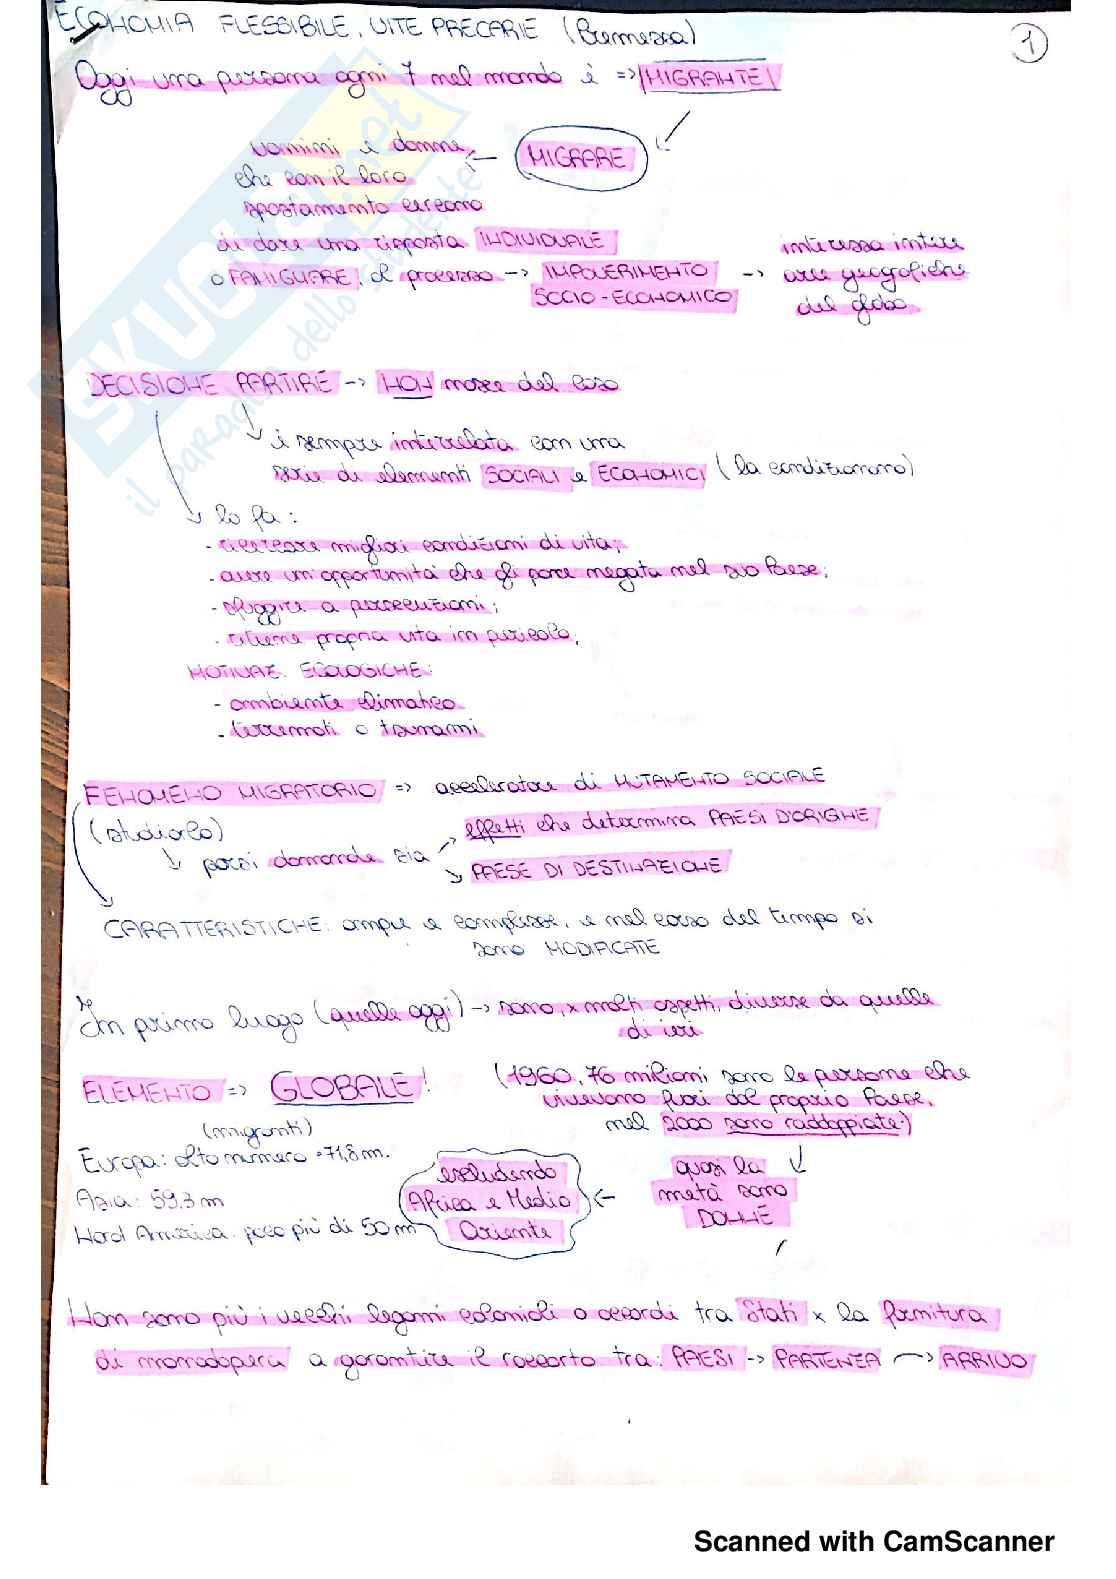 ECONOMIA FLESSIBILE, VITE PRECARIE (Premessa)
1
Oggi una persona ogni 7 nel mondo è => MIGRANTE
uomini e donne ← MIGRARE
che con il loro
spostamento cercano
di dare una risposta INDIVIDUALE
o FAMIGLIARE, al processo -> IMPOVERIMENTO SOCIO-ECONOMICO -> interessa intere aree geografiche del globo.
DECISIONE PARTIRE -> NON nasce dal caso
è sempre interrelata con una
serie di elementi SOCIALI e ECONOMICI (la condizionano)
lo fa:
- ricercare migliori condizioni di vita;
- avere un'opportunità che gli pare negata nel suo Paese;
- sfuggire a persecuzioni;
- ritiene propria vita in pericolo;
MOTIVAZ. ECOLOGICHE:
- ambiente climatico
- terremoti o tsunami
FENOMENO MIGRATORIO => acceleratore di MUTAMENTO SOCIALE
(studiarlo)
porsi domande sia
effetti che determina PAESI D'ORIGINE
PAESE DI DESTINAZIONE
CARATTERISTICHE: ampie e complesse, e nel corso del tempo si
sono MODIFICATE
In primo luogo (quelle oggi) -> sono, x molti aspetti, diverse da quelle
di ieri
ELEMENTO => GLOBALE!
(1960, 76 milioni sono le persone che
vivevano fuori dal proprio Paese,
nel 2000 sono raddoppiate.)
(migranti)
Europa: alto numero = 71,8 m.
Asia: 59,3 m
Nord America: poco più di 50 m
quasi la
metà sono
DONNE
escludendo
Africa e Medio
Oriente
Non sono più i vecchi legami coloniali o accordi tra Stati x la fornitura
di manodopera a garantire il raccordo tra: PAESI -> PARTENZA -> ARRIVO
SKUOLA.net
il paradiso dello studente
Scanned with CamScanner